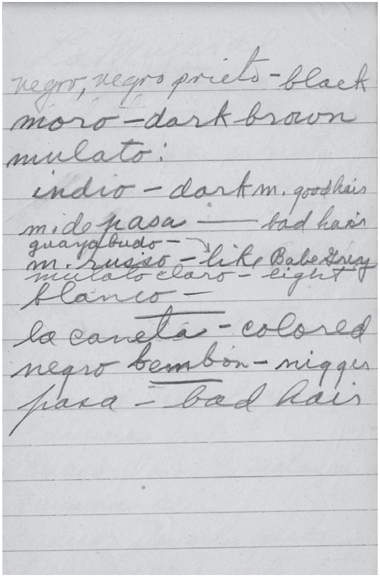 negro, negro prieto - black
moro - dark brown
mulato:
indio - dark m. good hair
m. de pasa — bad hair
guayabudo -
m. russo - like Babe Grey
mulato claro - light
blanco -
la caneta - colored
negro bembon - nigger
pasa - bad hair